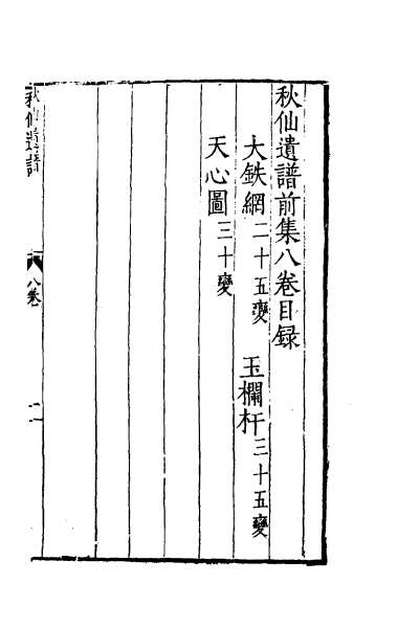 秋仙遺譜前集八卷目録
大鉄網二十五變 玉欄杆三十五變
天心圖三十變
秋仙遺譜
八卷